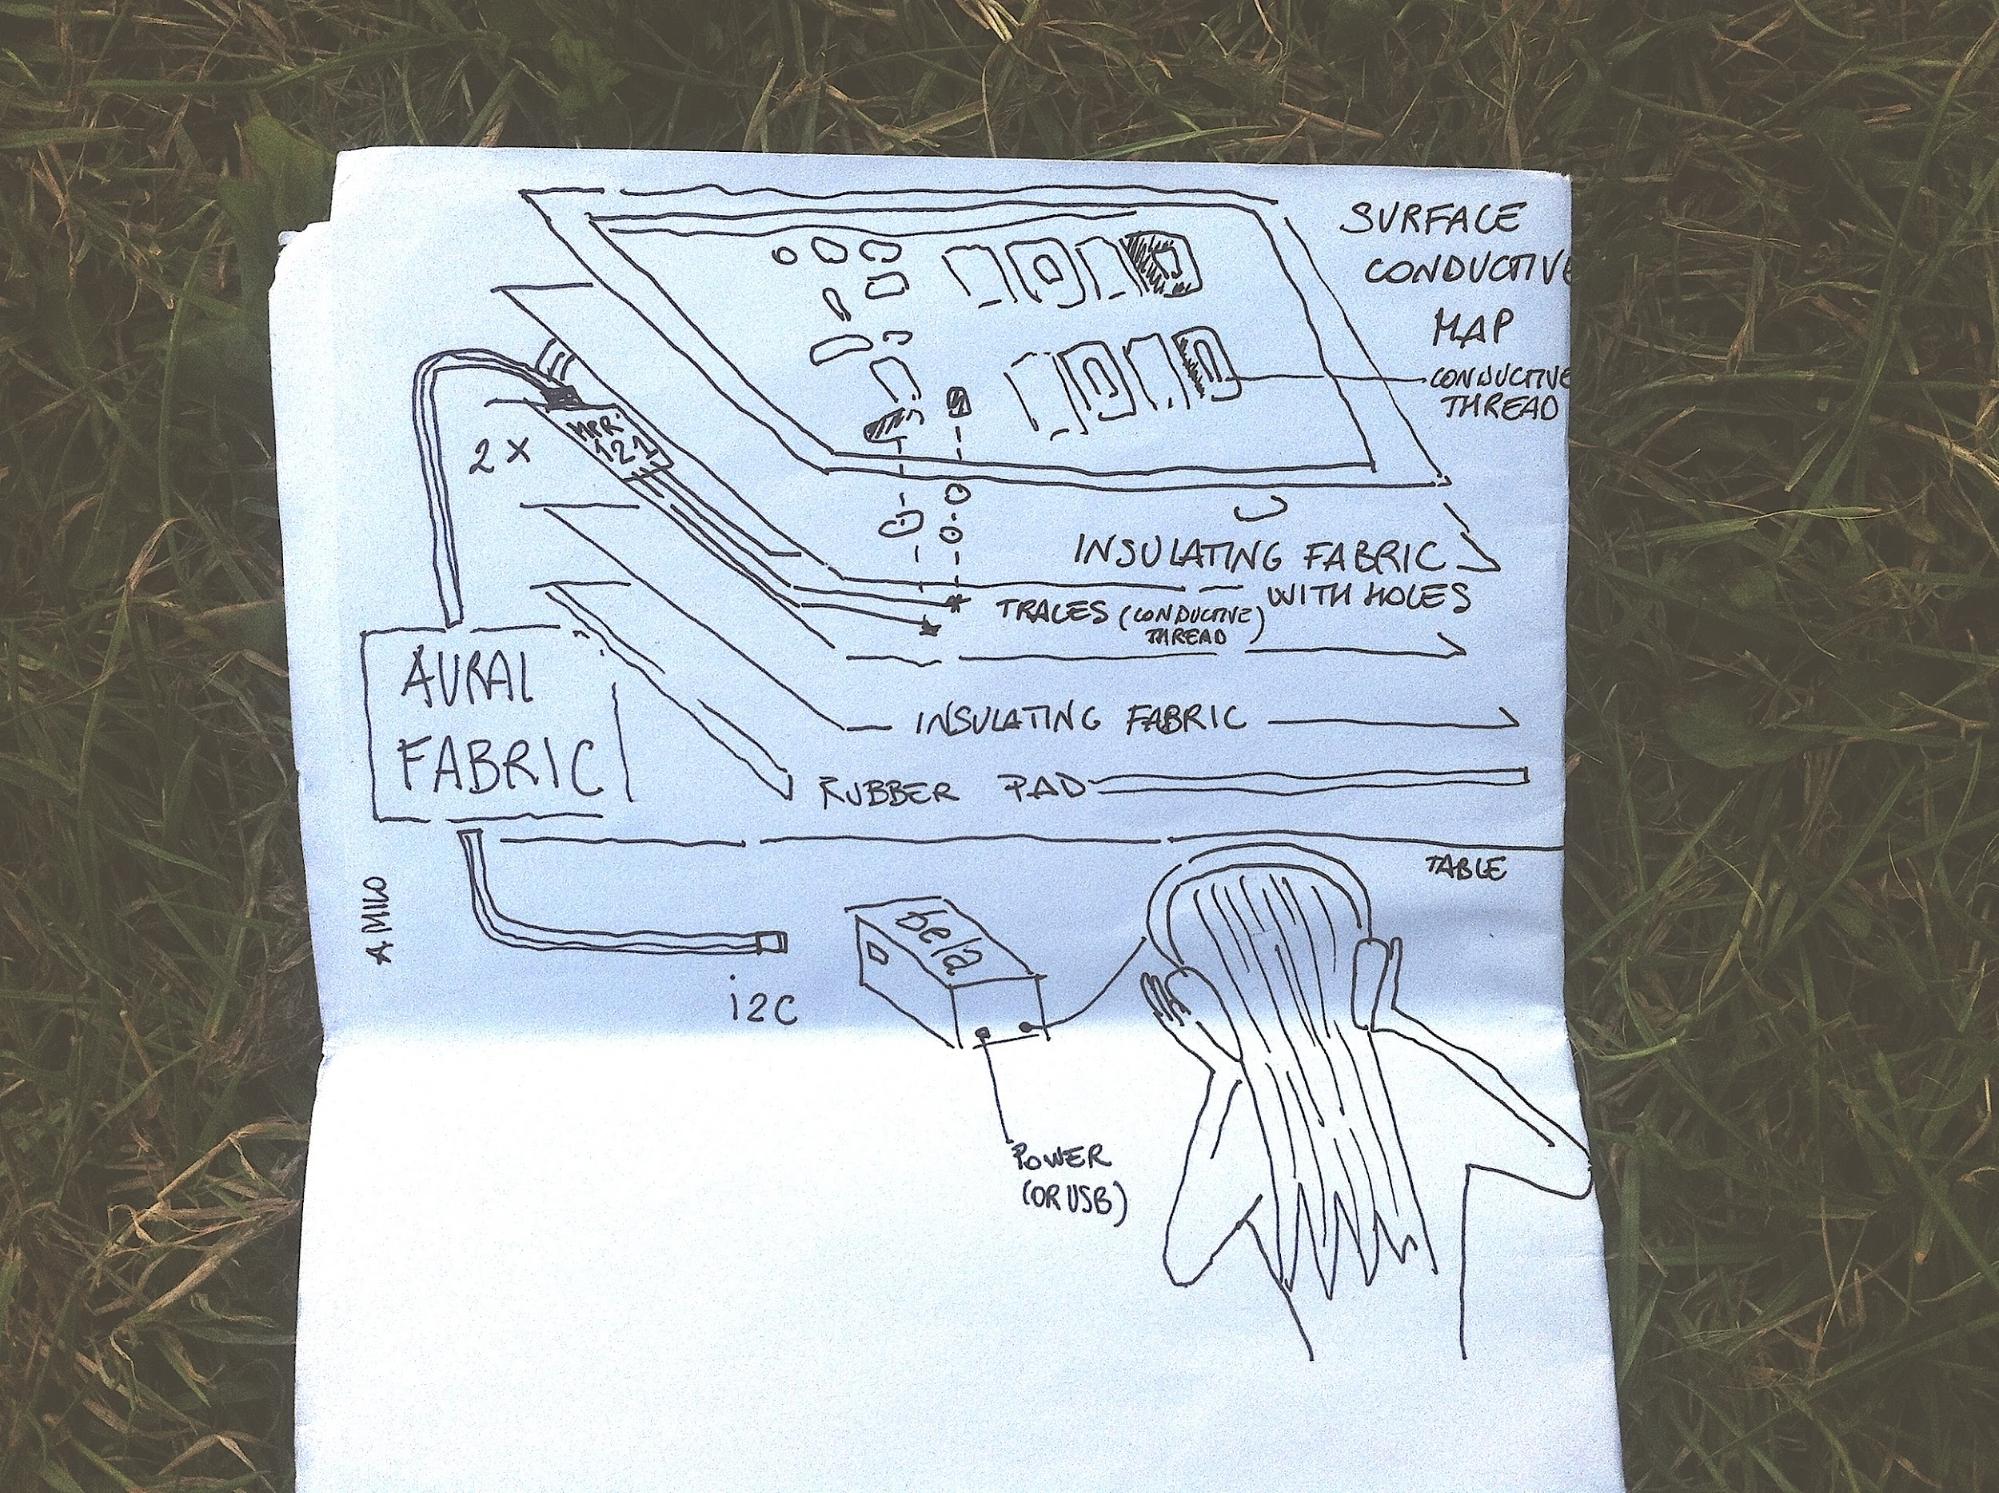 SURFACE
CONDUCTIVE
MAP
CONDUCTIVE
THREAD
MPR
121
2X
INSULATING FABRIC
WITH HOLES
TRACES (CONDUCTIVE
THREAD)
AURAL
FABRIC
INSULATING FABRIC
RUBBER PAD
TABLE
A MILO
bela
i2C
POWER
(OR USB)